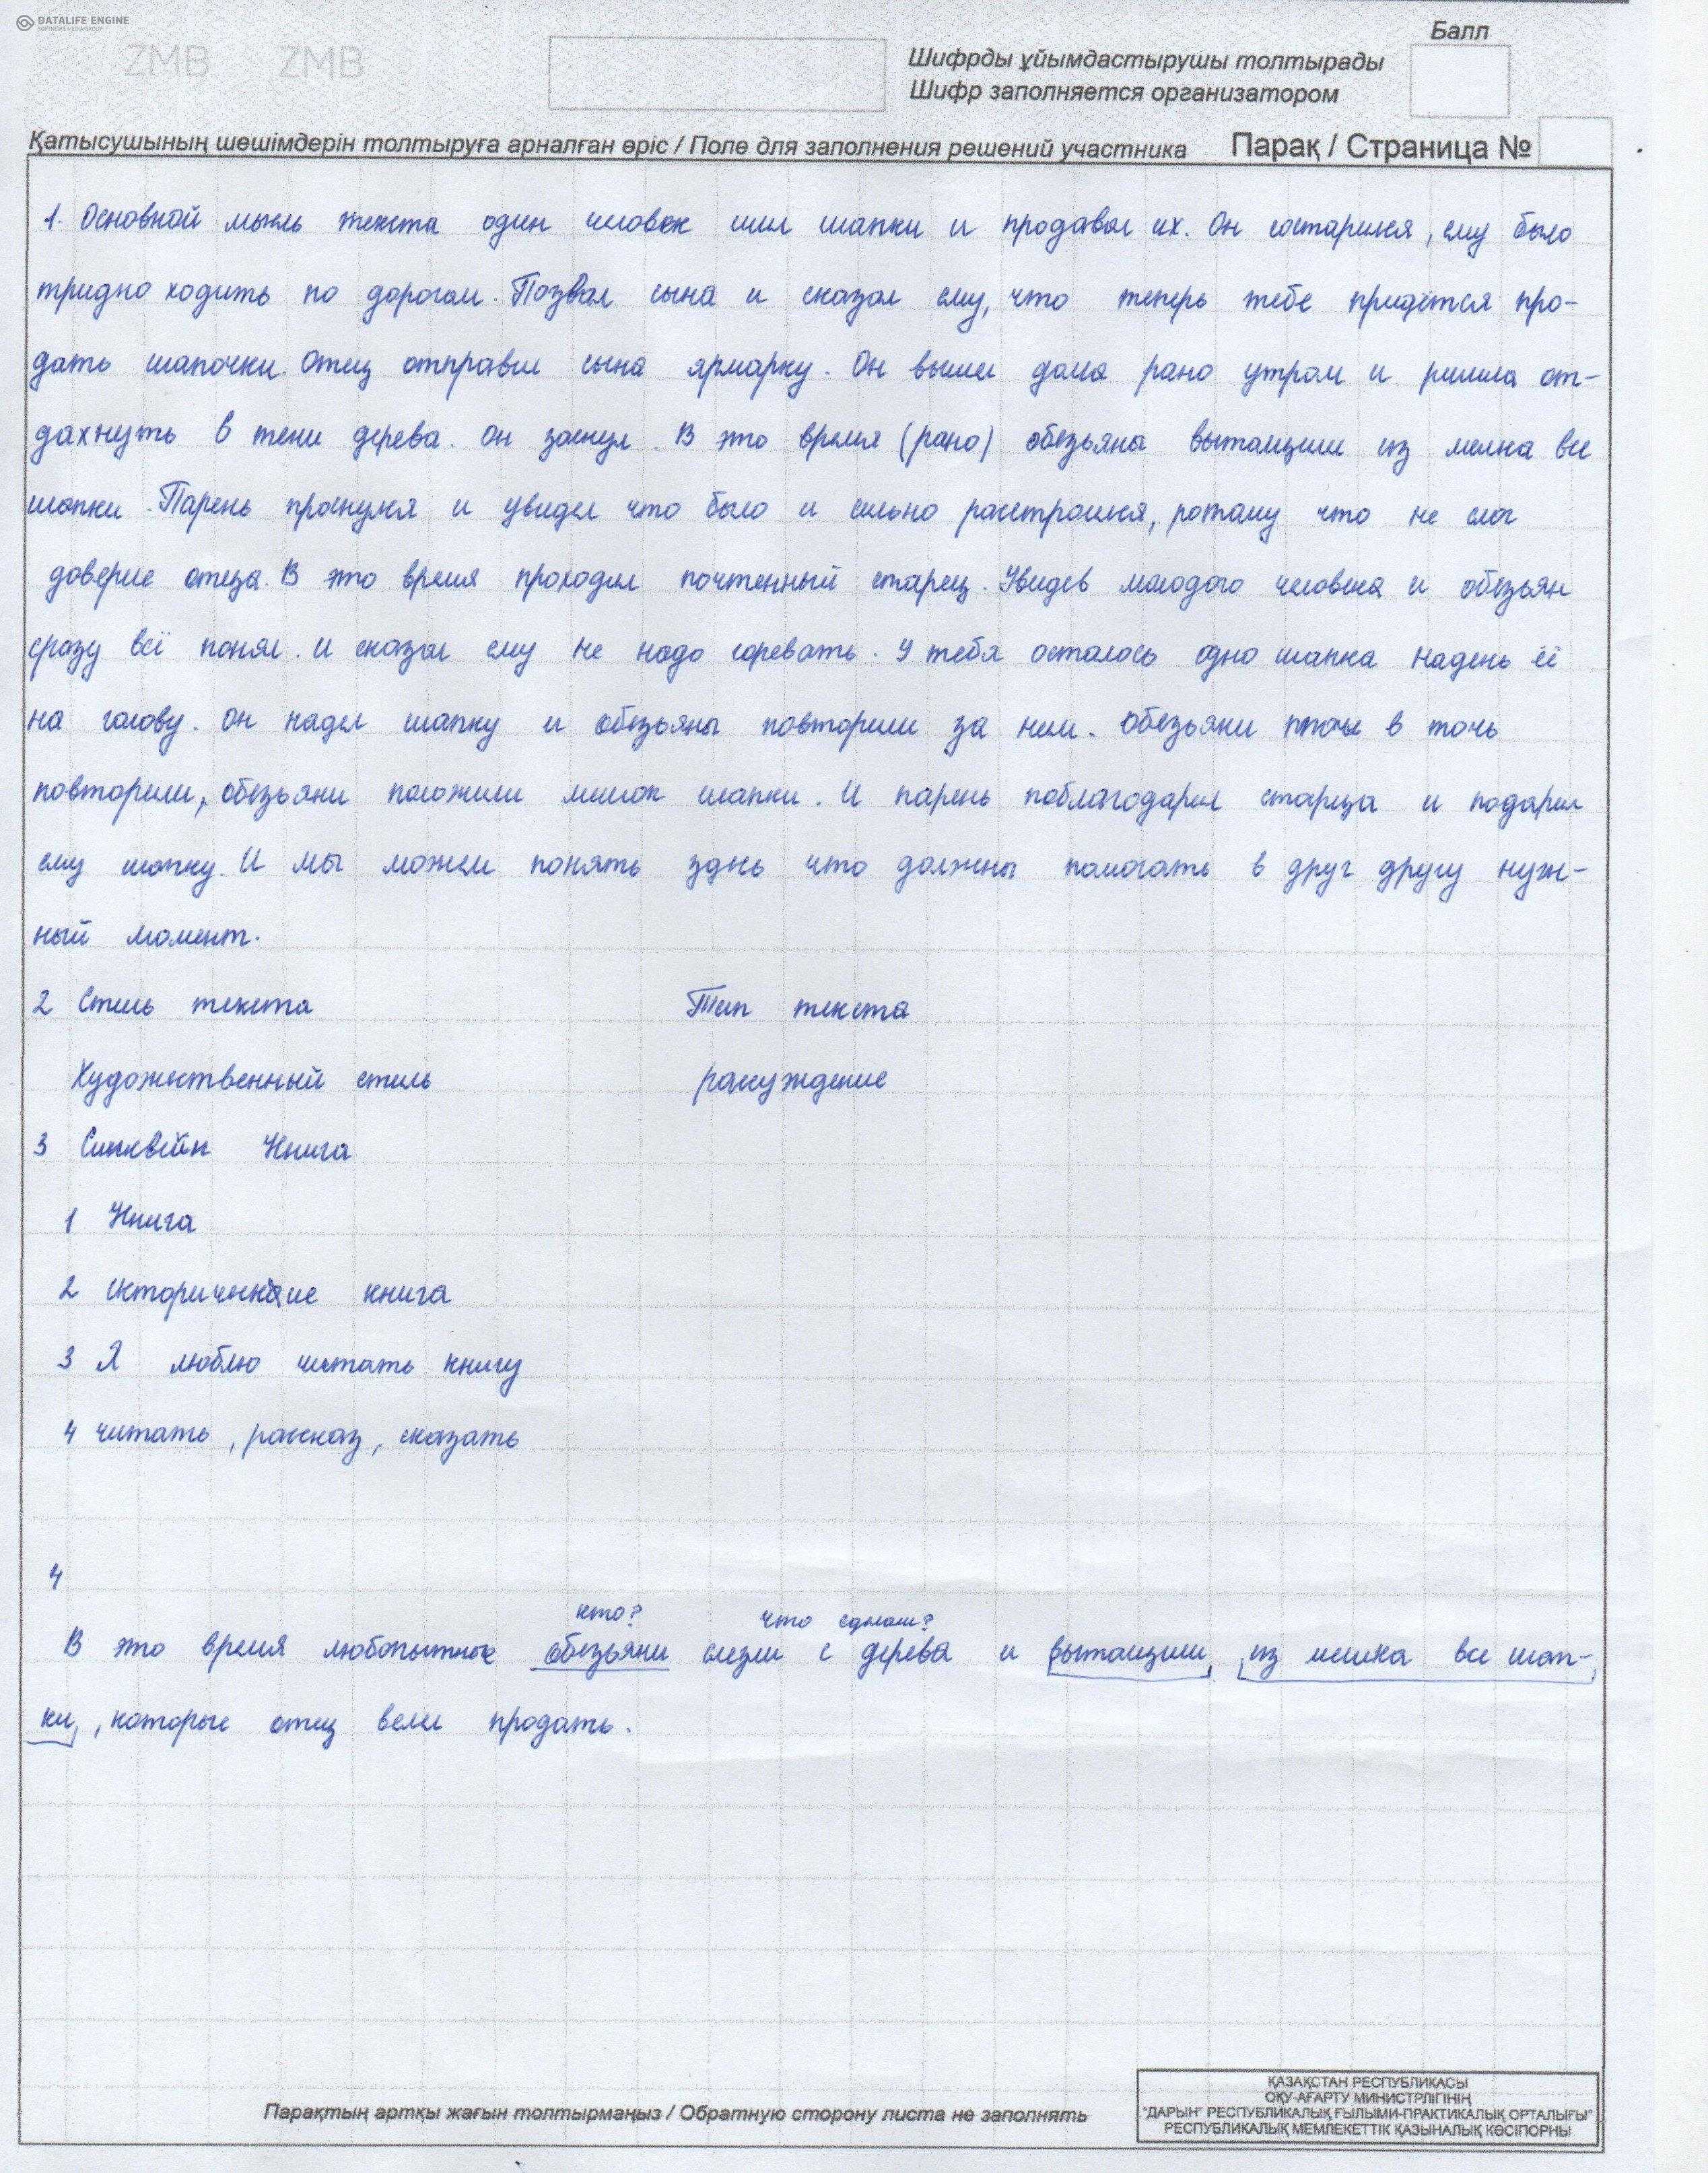 DATALIFE ENGINE
ZMB ZMB
Балл
Шифрды ұйымдастырушы толтырады
Шифр заполняется организатором
Қатысушының шешімдерін толтыруға арналған өріс / Поле для заполнения решений участника Парақ / Страница №
1. Основной мысль текста один человек шил шапки и продавал их. Он состарился, ему было
тридно ходить по дорогам. Позвал сына и сказал ему, что теперь тебе придётся про-
дать шапочки. Отец отправил сына ярмарку. Он вышел дома рано утром и решила от-
дахнуть в тени дерева. Он заснул. В это время (рано) обезьяны вытащили из мешка все
шапки. Парень проснулся и увидел что было и сильно расстроился, потому что не смог
доверие отеца. В это время проходил почтенный старец. Увидев молодого человека и обезьян
сразу всё понял. И сказал ему не надо горевать. У тебя осталось одно шапка надень её
на голову. Он надел шапку и обезьяны повторили за ним. Обезьяни точь в точь
повторили, обезьяни положили мешок шапки. И парень поблагодарил старца и подарил
ему шапку. И мы можем понять здесь что должны помогать в друг другу нуж-
ный момент.
2 Стиль текста Тип текста
Художественный стиль рассуждение
3 Синквейн Книга
1 Книга
2 исторические книга
3 Я люблю читать книгу
4 читать, рассказ, сказать
4
кто? что сделали?
В это время любопытные обезьяни слезли с дерева и вытащили из мешка все шап-
ки, которые отец велел продать.
Парақтың артқы жағын толтырмаңыз / Обратную сторону листа не заполнять
ҚАЗАҚСТАН РЕСПУБЛИКАСЫ
ОҚУ-АҒАРТУ МИНИСТРЛІГІНІҢ
"ДАРЫН" РЕСПУБЛИКАЛЫҚ ҒЫЛЫМИ-ПРАКТИКАЛЫҚ ОРТАЛЫҒЫ"
РЕСПУБЛИКАЛЫҚ МЕМЛЕКЕТТІК ҚАЗЫНАЛЫҚ КӘСІПОРНЫ